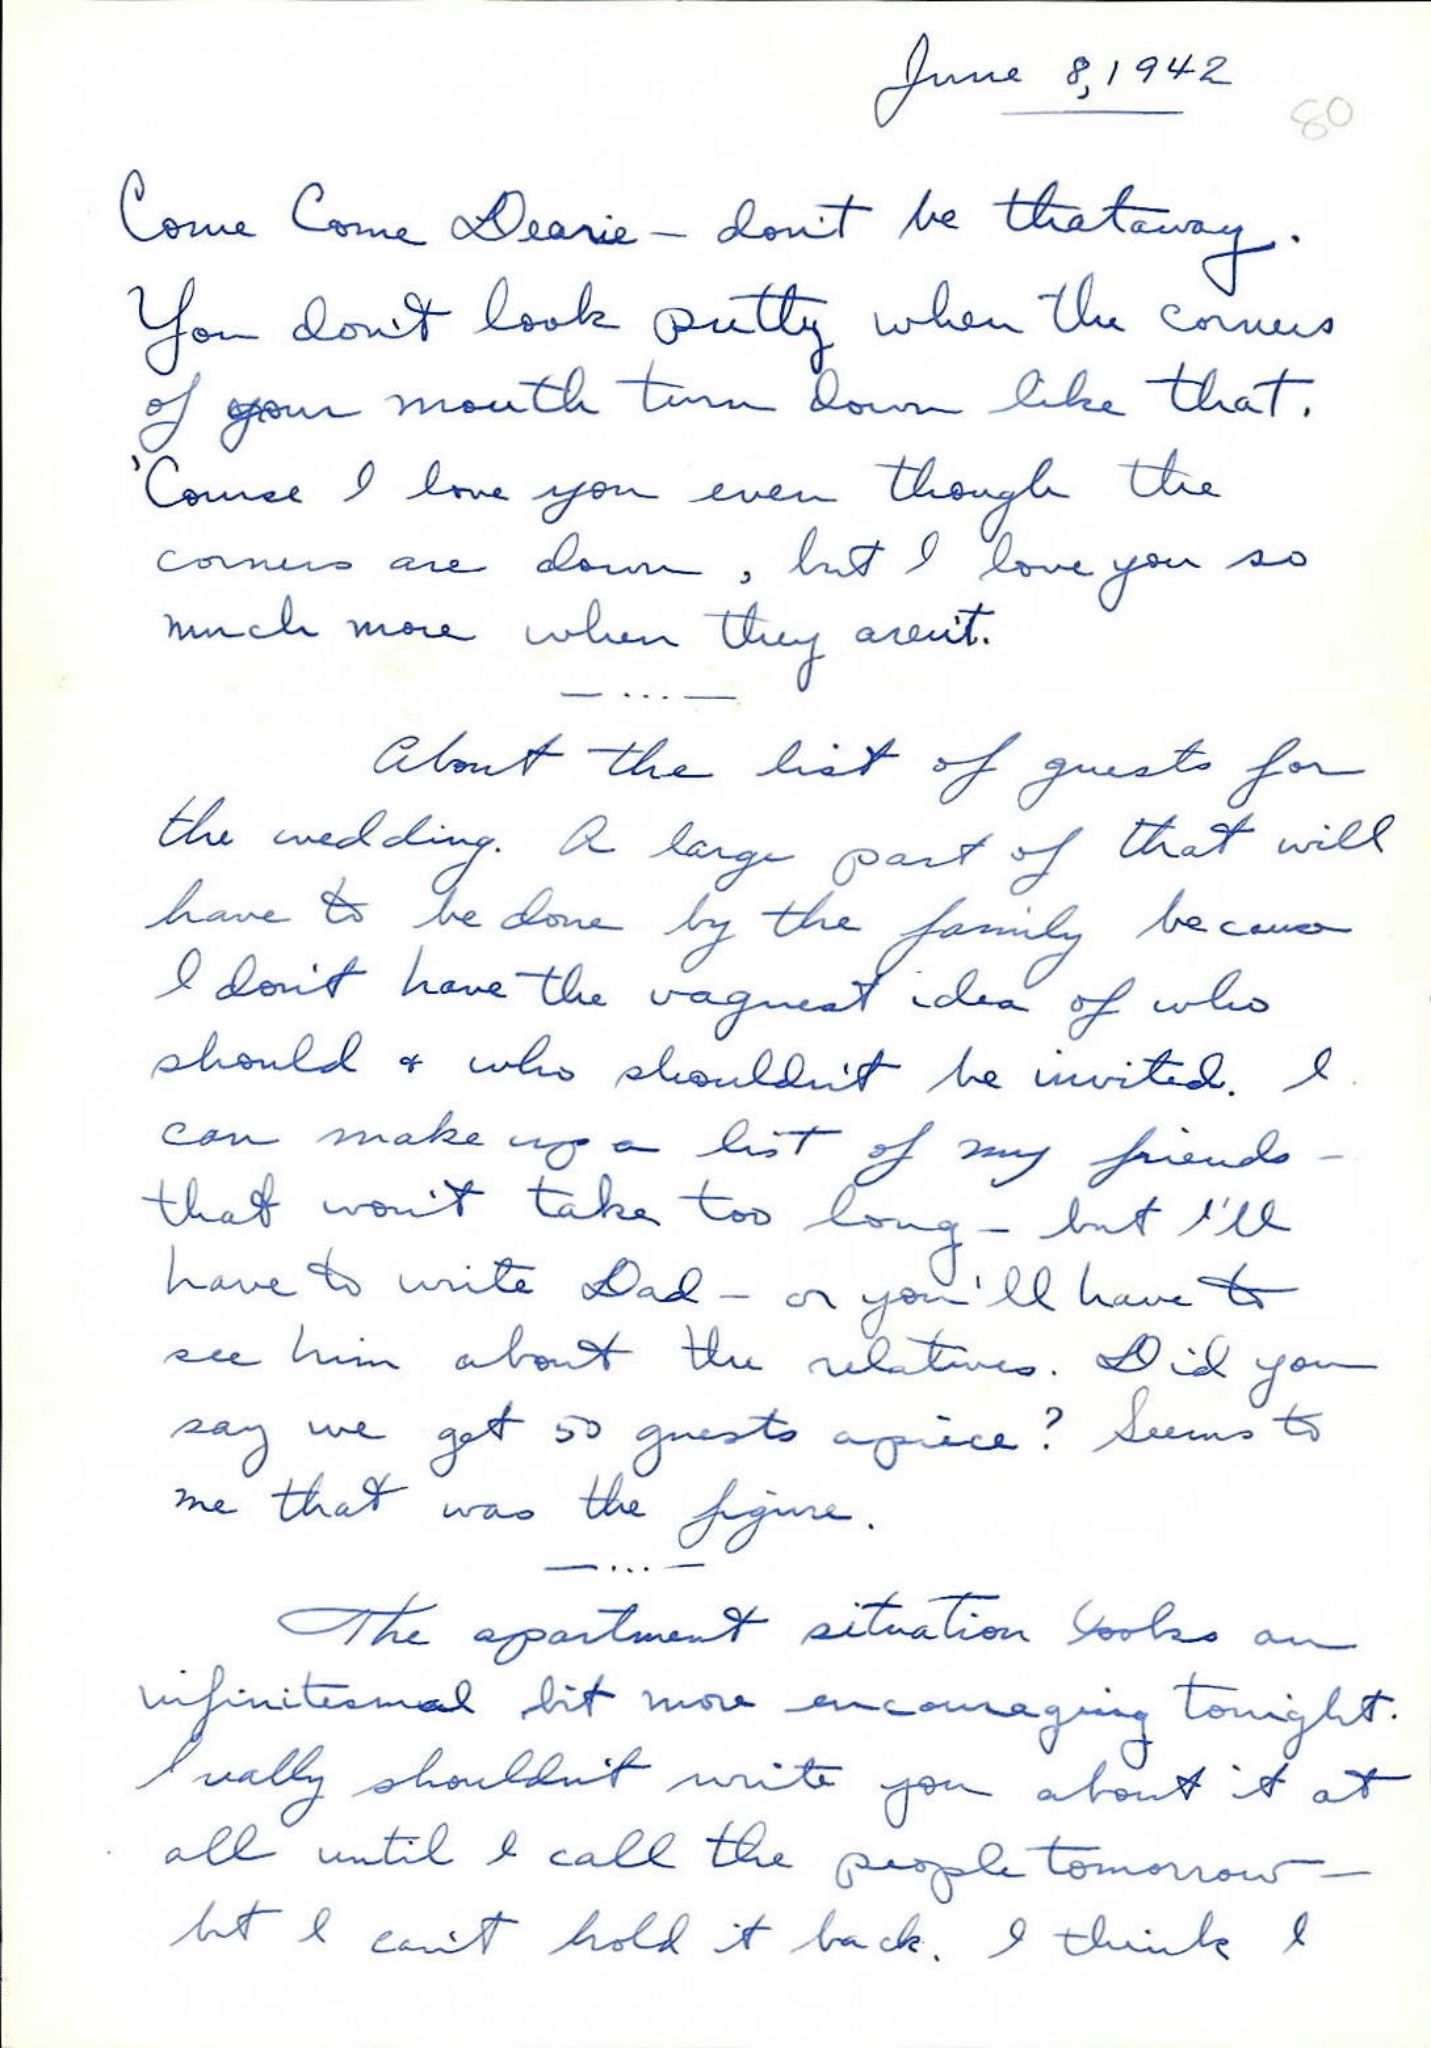 June 8, 1942
80
Come Come Dearie – don't be thataway.
You don't look pretty when the corners
of your mouth turn down like that.
'Course I love you even though the
corners are down, but I love you so
much more when they aren't.
— ... —
About the list of guests for
the wedding. A large part of that will
have to be done by the family because
I don't have the vaguest idea of who
should & who shouldn't be invited. I
can make up a list of my friends –
that won't take too long – but I'll
have to write Dad – or you'll have to
see him about the relatives. Did you
say we get 50 guests apiece? Seems to
me that was the figure.
— ... —
The apartment situation looks an
infinitesmal bit more encouraging tonight.
I really shouldn't write you about it at
all until I call the people tomorrow –
but I can't hold it back. I think I